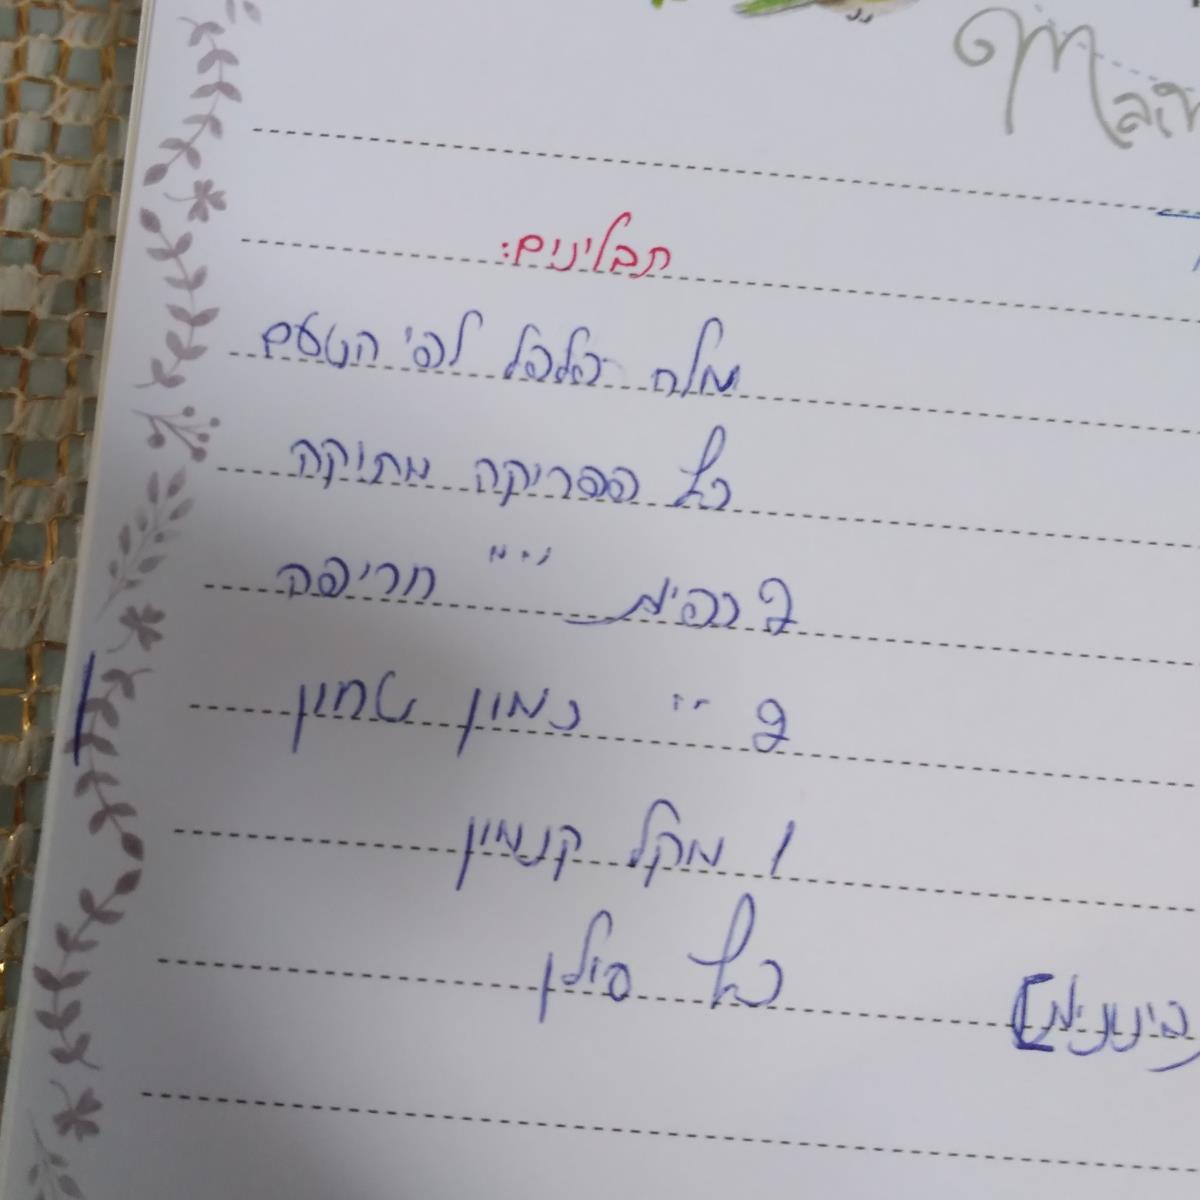 תבלינים:
מלח פלפל לפי הטעם
כף פפריקה מתוקה
2 כפית " " " חריפה
2 " " כמון טחון
1 מקל קנמון
כף סילן
בינונים]